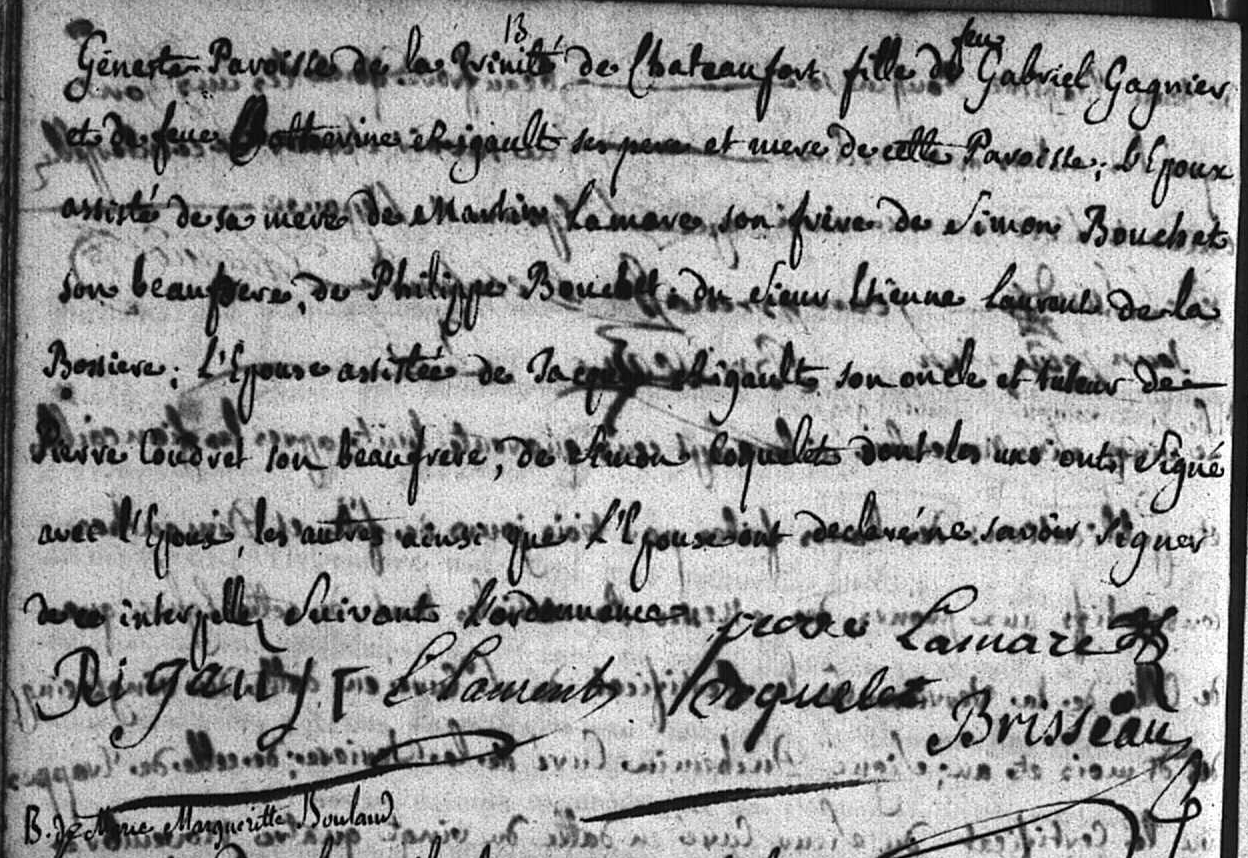 13
Géneste Paroisse de la Trinité de Chateaufort fille de feu Gabriel Gagnier
et de feue Catherine Rigault ses pere et mere de cette Paroisse; L'Epoux
assisté de sa mere de Martin Lamare son frère de Simon Bouchet
son beaufrere, de Philippe Bouchet, du Sieur Etienne Laurent de la
Bossiere; L'Epouse assistée de Jacques Rigault son oncle et tuteur de
Pierre Coudret son beaufrere, de Simon Coquelet dont les uns ont Signé
avec l'Epoux, les autres ainsi que L'Epouse ont declaré ne savoir Signer
de ce interpellé Suivant L'ordonnance pierre Lamare
Rigault E Laurent Coquelet
Brisseau
B. de Marie Margueritte Bouland